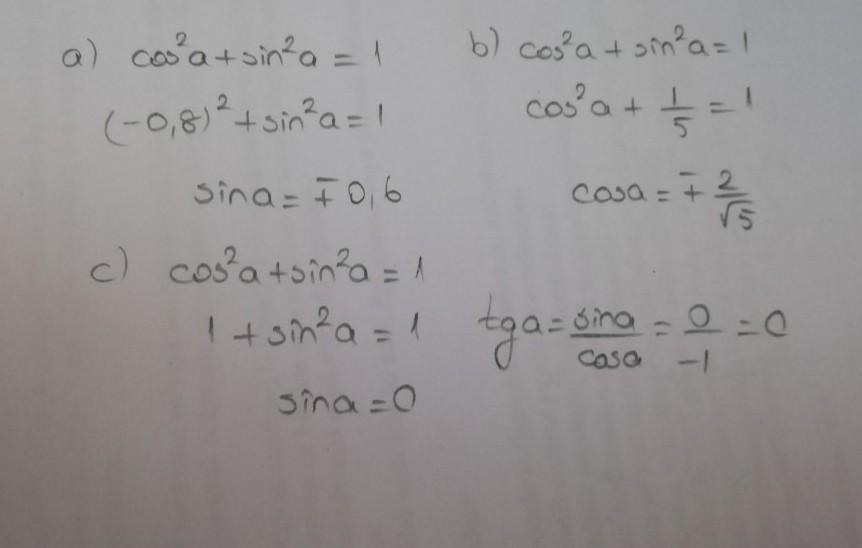 a) cos²a + sin²a = 1
(-0,8)² + sin²a = 1
sina = ∓ 0,6
b) cos²a + sin²a = 1
cos²a + 1/5 = 1
cosa = ∓ 2/√5
c) cos²a + sin²a = 1
1 + sin²a = 1
sina = 0
tga = sina/cosa = 0/-1 = 0